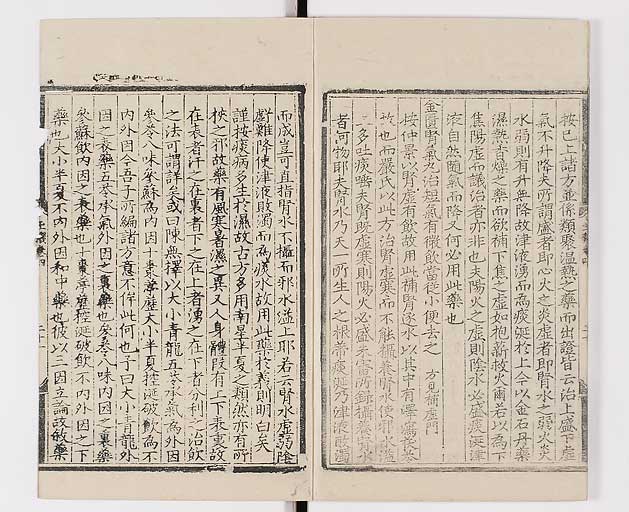 按已上諸方並係類聚温熱之藥而出證皆云治上盛下虚
氣不升降夫所謂盛者即心火之炎虚者即腎水之弱火炎
水弱則有升無降故津液湧而為痰涎於上今以金石丹藥
濕熱香燥之藥而欲補下焦之虚如抱薪救火爾若以為下
焦陽虚而議治者亦非也夫陽火之虚則陰水必盛痰涎津
液自然隨氣而降又何必用此藥也
金匱腎氣丸治短氣有微飲當從小便去之 方見補虚門
按仲景以腎虚有飲故用此補腎逐水以其中有澤瀉茯苓
故也而嚴氏以此方治腎虚寒而不能攝養腎水使邪水溢
上多吐痰唾夫腎既虚寒則陽火必盛所錄攝養腎水
者何物耶夫腎水乃天一所生人之根蒂痰涎乃津液敗濁
而成豈可直指腎水不攝而邪水溢上耶若云腎水虚弱陰
虧難降使津液敗濁而為痰水故用此藥於義則明白矣
謹按痰病多生於濕故古方多用南星半夏之類然亦有所
挾之邪故藥有風寒暑濕之異又人身體段有上下表裏故
在表者汗之在裏者下之在上者湧之在下者分利之治飲
之法可謂詳矣或曰陳無擇以大小青龍五苓承氣為外因
參苓八味參蘇為内因十棗葶藶大小半夏控涎破飲為不
内外因今吾子所編諸方意不侔此何也予曰大小青龍外
因之表藥五苓承氣外因之裏藥也參苓八味内因之裏藥
參蘇飲内因之表藥也十棗葶藶控涎破飲不内外因之下
藥也大小半夏不内外因和中藥也彼以三因立論故敘藥